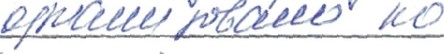 организовано на